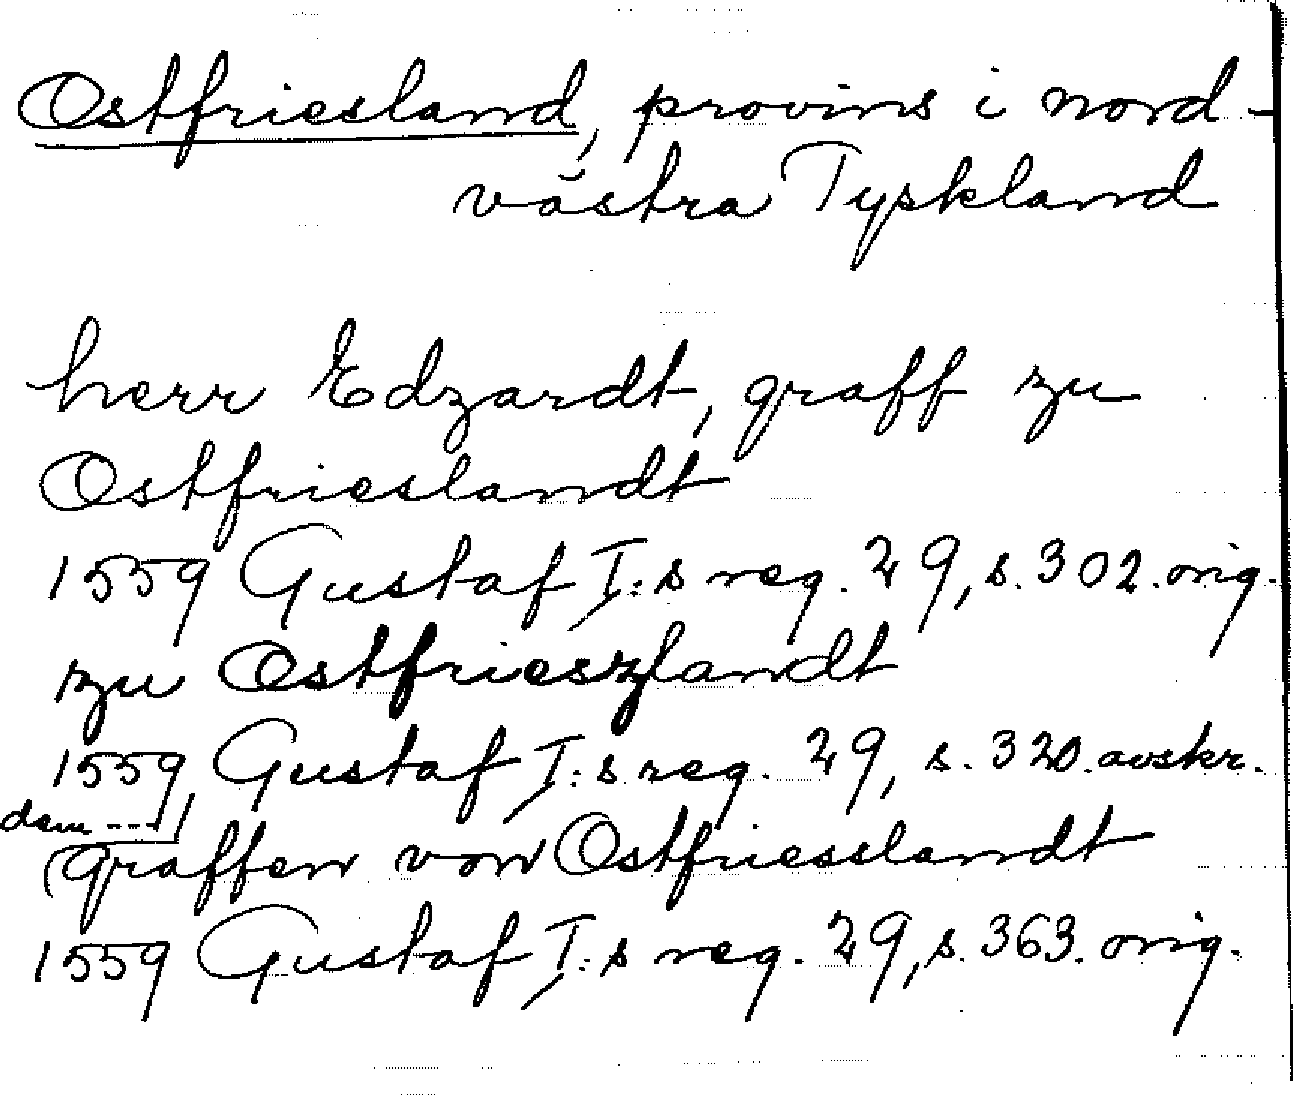 Ostfriesland, provins i nord-
västra Tyskland
herr Edzardt, graff zu
Ostfrieslandt
1559 Gustaf I:s reg. 29, s. 302. orig.
zu Ostfrieszlandt
1559, Gustaf I:s reg. 29, s. 320. avskr.
dem ---
(graffen von Ostfriesslandt
1559 Gustaf I:s reg. 29, s. 363. orig.